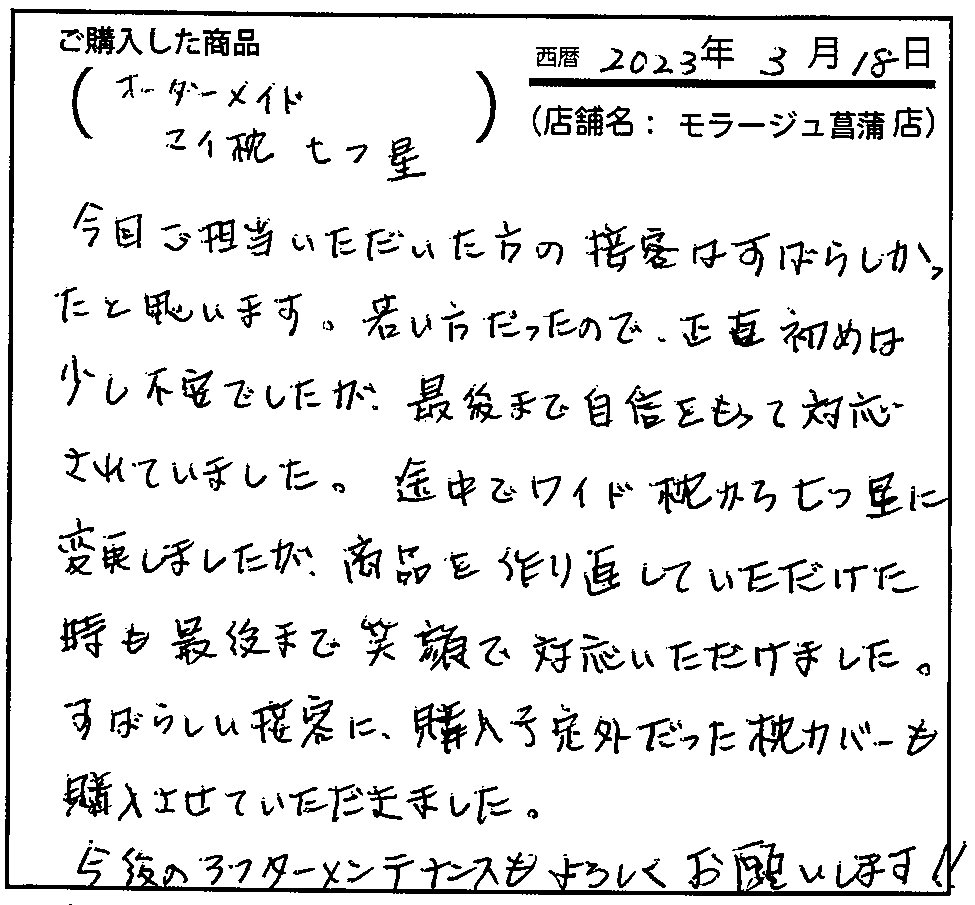 ご購入した商品
西暦 2023年 3月18日
(オーダーメイド
マイ枕 七つ星)
(店舗名:モラージュ菖蒲店)
今回ご担当いただいた方の接客はすばらしかっ
たと思います。若い方だったので、正直初めは
少し不安でしたが、最後まで自信をもって対応
されていました。途中でワイド枕から七つ星に
変更しましたが、商品を作り直していただけた
時も最後まで笑顔で対応いただけました。
すばらしい接客に、購入予定外だった枕カバーも
購入させていただきました。
今後のアフターメンテナンスもよろしくお願いします!!